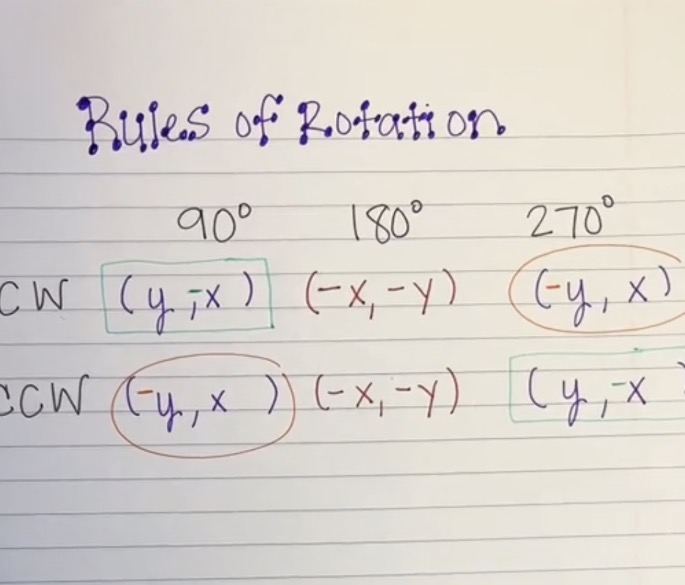 Rules of Rotation
90° 180° 270°
CW (y,-x) (-x,-y) (-y, x)
CCW (-y, x) (-x,-y) (y,-x